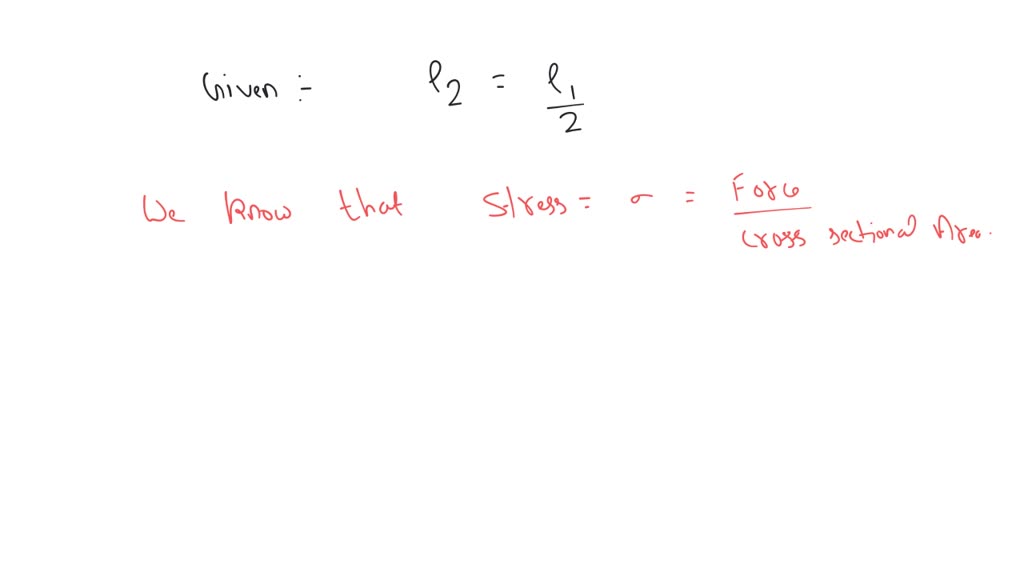 Given :- l2 = l1/2
We know that Stress = σ = Force / cross sectional Area.